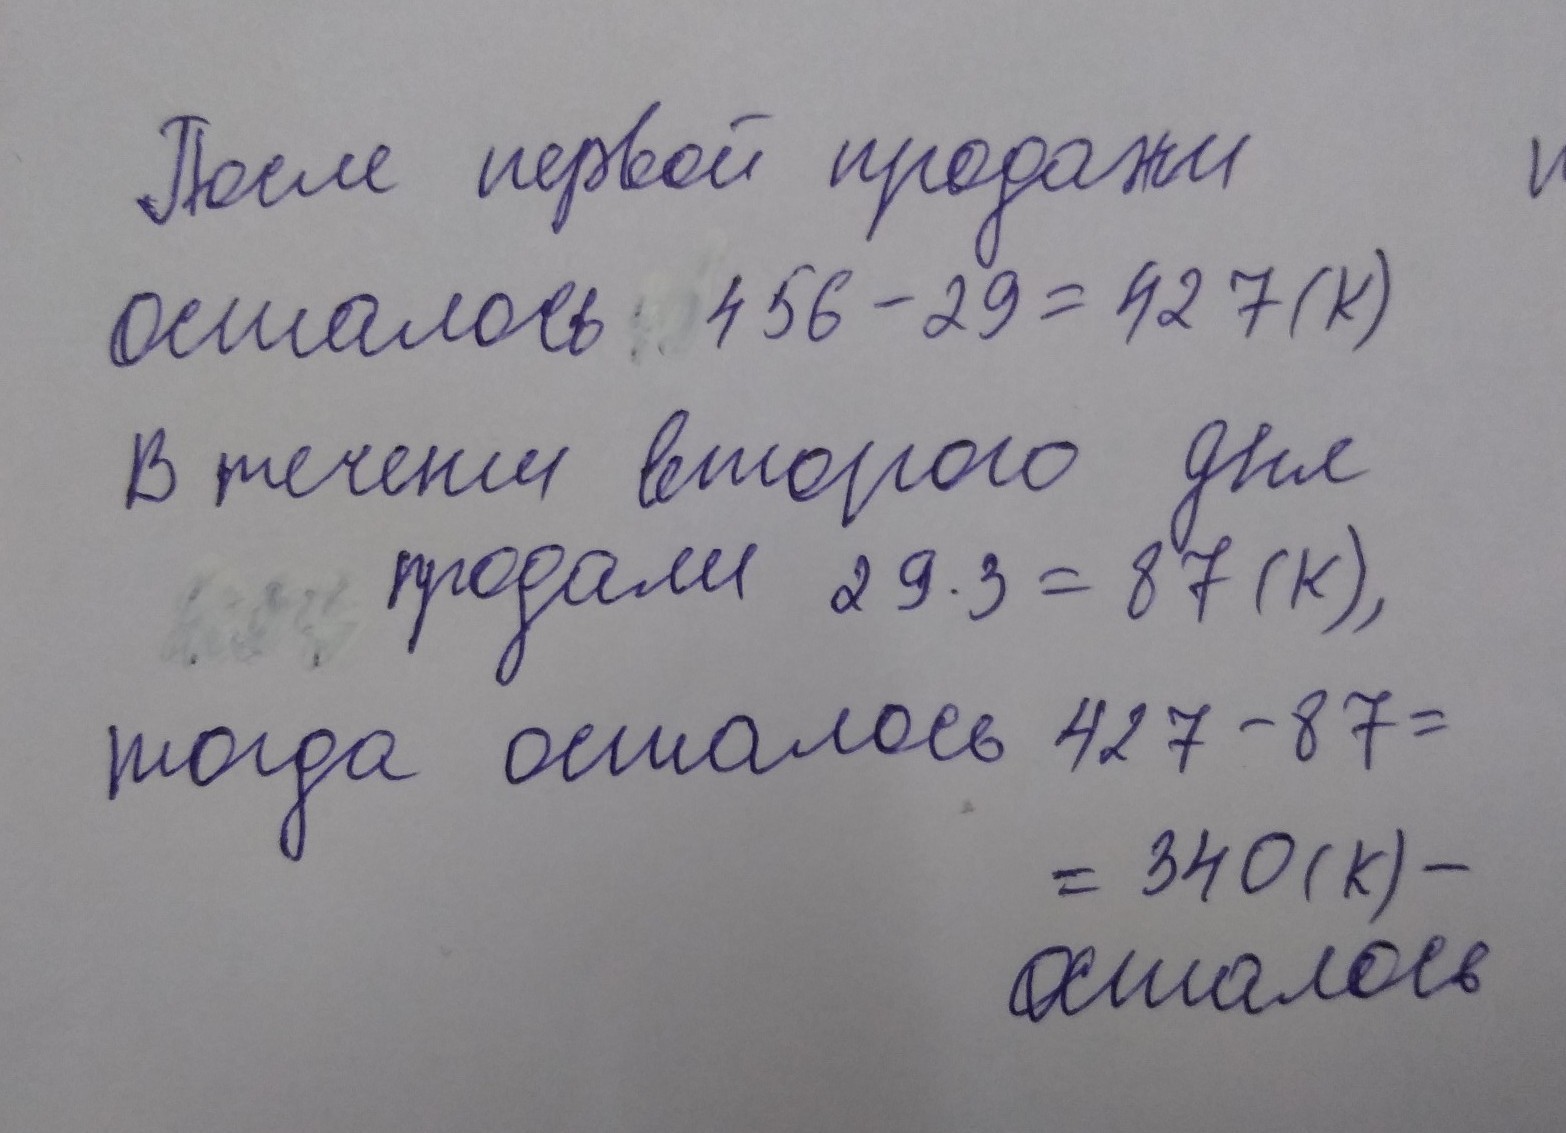 После первой продажи
осталось 456 - 29 = 427 (к)
В течении второго дня
продали 29 · 3 = 87 (к),
тогда осталось 427 - 87 =
= 340 (к) -
осталось